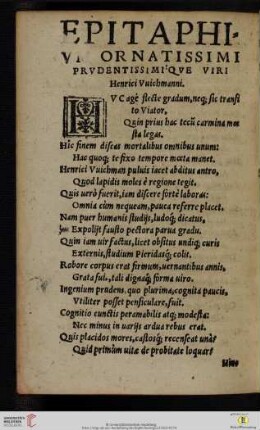 EPITAPHI-
VM ORNATISSIMI
PRVDENTISSIMI´QVE VIRI
Henrici Vuichmanni.
HVC agè flecte gradum, neq; sic transi
to Viator,
Quin prius hæc tecũ carmina mœ
sta legas.
Hîc finem discas mortalibus omnibus unum:
Hac quoq; te fixo tempore mœta manet.
Henrici Vuichman puluis iacet abditus antro,
Quod lapidis moles è regione tegit.
Quis uerò fuerit, iam discere fortè labora:
Omnia cùm nequeam, pauca referre placet.
Nam puer humanis studijs, ludoq; dicatus,
Expolijt fausto pectora parua gradu.
Quin iam uir factus, licet obsitus undiq; curis
Externis, studium Pieridasq; colit.
Robore corpus erat firmum, uernantibus annis,
Grata fuit, tali dignaq; forma uiro.
Ingenium prudens, quo plurima, cognita paucis,
Vtiliter posset pensiculare, fuit.
Cognitio cunctis peramabilis atq; modesta:
Nec minus in uarijs ardua rebus erat.
Quis placidos mores, castosq; recenseat unus?
Quid primùm uitæ de probitate loquar?